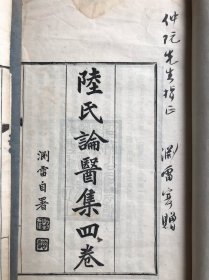 仲阮先生指正
渊雷寄贈
陸氏論醫集四卷
渊雷自署